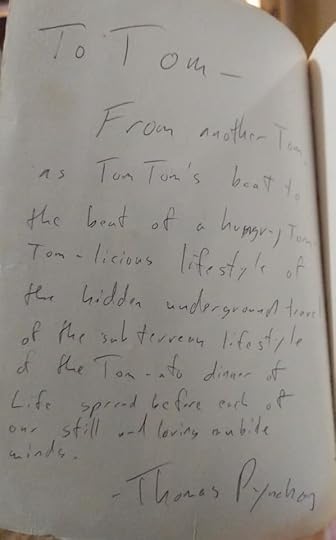 To Tom —
From another Tom,
as Tom Tom's beat to
the beat of a hungry Tom
Tom-licious lifestyle of
the hidden underground
of the subterrean lifestyle
of the Tom-ato dinner of
Life spread before each of
our still and loving
minds.
- Thomas Pynchon